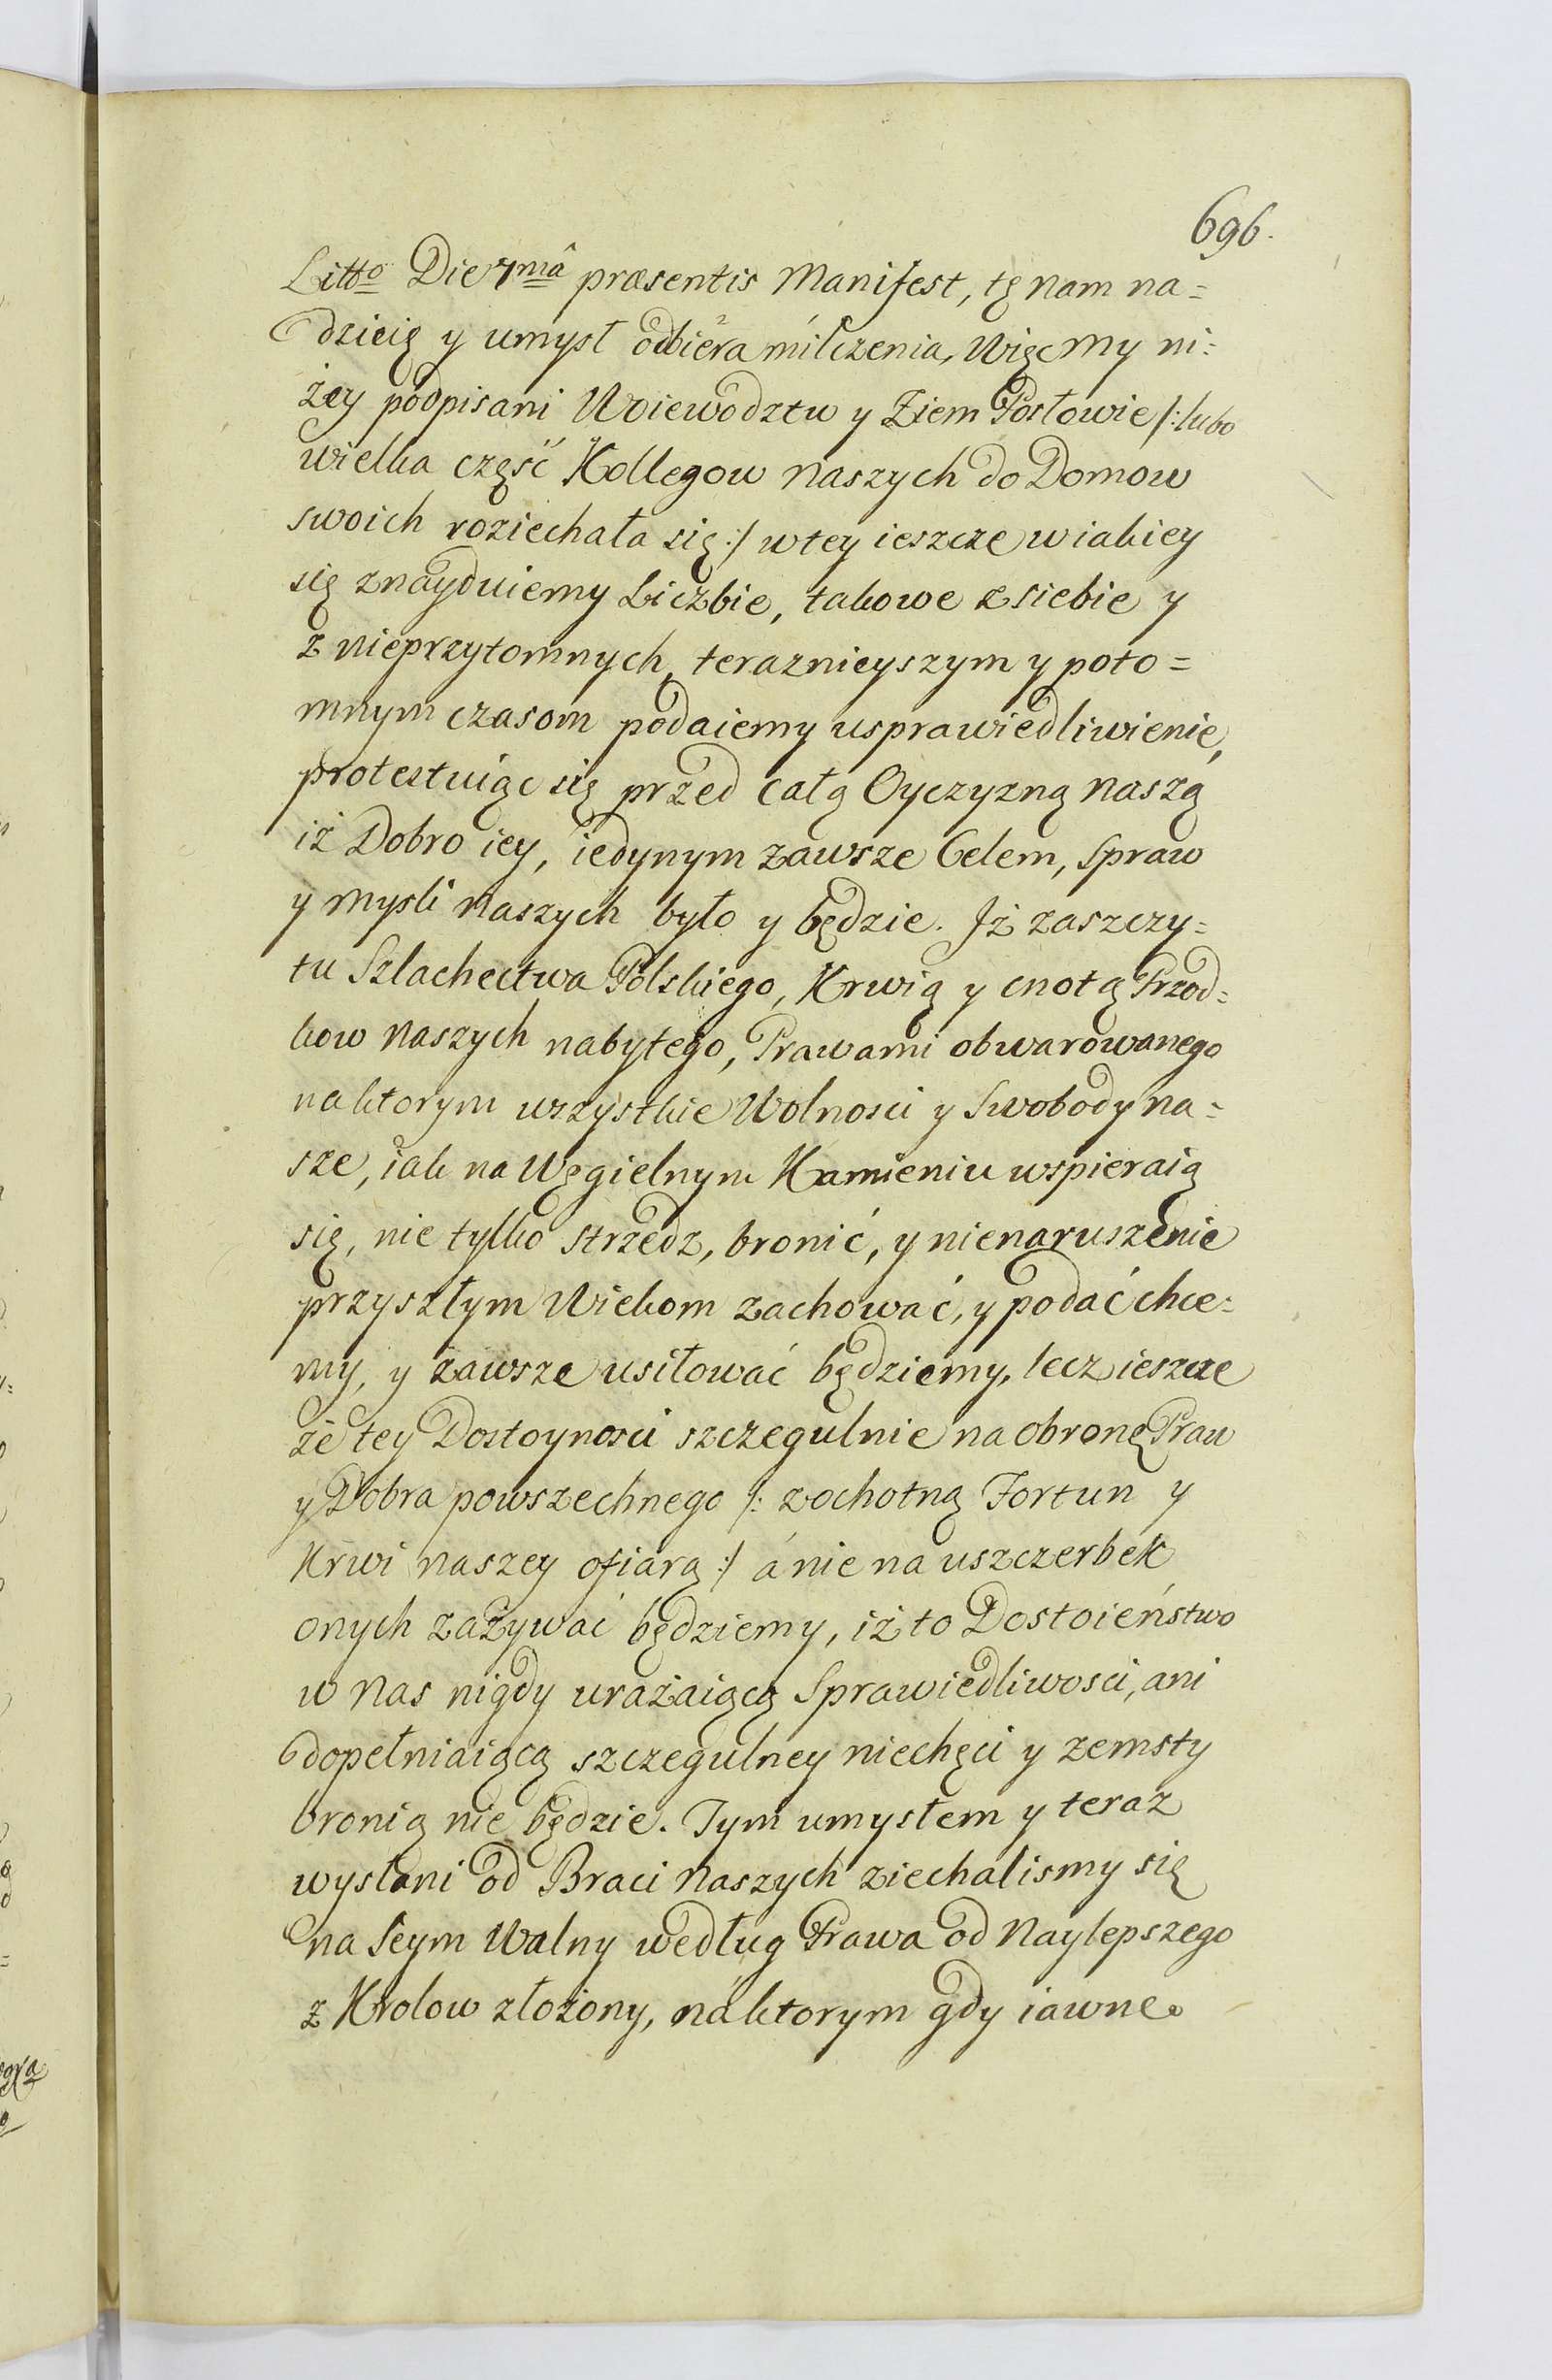 696.
Litto Die 7ma præsentis Manifest, tę nam na=
dzieię y umysł odbiera milczenia, Więc my ni=
żey podpisani Woiewodztw y Ziem Posłowie /: lubo
wielka część Kollegow naszych do Domow
swoich roziechała się :/ w tey ieszcze w iakiey
się znayduiemy Liczbie, takowe z siebie y
z nieprzytomnych, teraznieyszym y poto=
mnym czasom podaiemy usprawiedliwienie,
protestuiąc się przed całą Oyczyzną naszą
iż Dobro iey, iedynym zawsze Celem, Spraw
y mysli naszych było y będzie. Iż zaszczy=
tu Szlachectwa Polskiego, Krwią y cnotą Przod=
kow naszych nabytego, Prawami obwarowanego
na ktorym wszystkie Wolnosci y Swobody na=
sze, iak na Węgielnym Kamieniu wspieraią
się, nie tylko strzedz, bronić, y nienaruszenie
przyszłym Wiekom zachować, y podać chce=
my, y zawsze usiłować będziemy, lecz ieszcze
że tey Dostoynosci szczegulnie na obronę Praw
y Dobra powszechnego /: z ochotną Fortun y
Krwi naszey ofiarą :/ á nie na uszczerbek
onych zażywać będziemy, iż to Dostoieństwo
w nas nigdy urażaiącą Sprawiedliwosci, ani
dopełniaiącą szczegulney niechęci y zemsty
bronią nie będzie. Tym umysłem y teraz
wysłani od Braci naszych ziechalismy się
na Seym Walny według Prawa od Naylepszego
z Krolow złożony, na ktorym gdy iawne